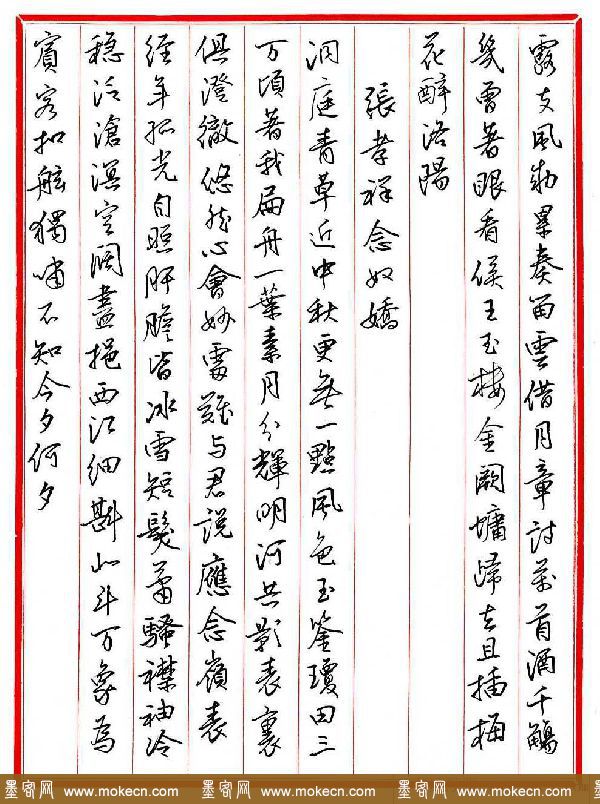 露支風勅累奏留雲借月章詩萬首酒千觴
幾曾著眼看侯王玉樓金闕慵歸去且插梅
花醉洛陽
張孝祥念奴嬌
洞庭青草近中秋更無一點風色玉鑒瓊田三
万頃著我扁舟一葉素月分輝明河共影表裏
俱澄徹悠然心會妙處難与君說應念嶺表
經年孤光自照肝膽皆冰雪短髮蕭騷襟袖冷
穩泛滄溟空闊盡挹西江細斟北斗万象為
賓客扣舷獨嘯不知今夕何夕
墨客网 www.mokecn.com 墨客网 www.mokecn.com 墨客网 www.mokecn.com